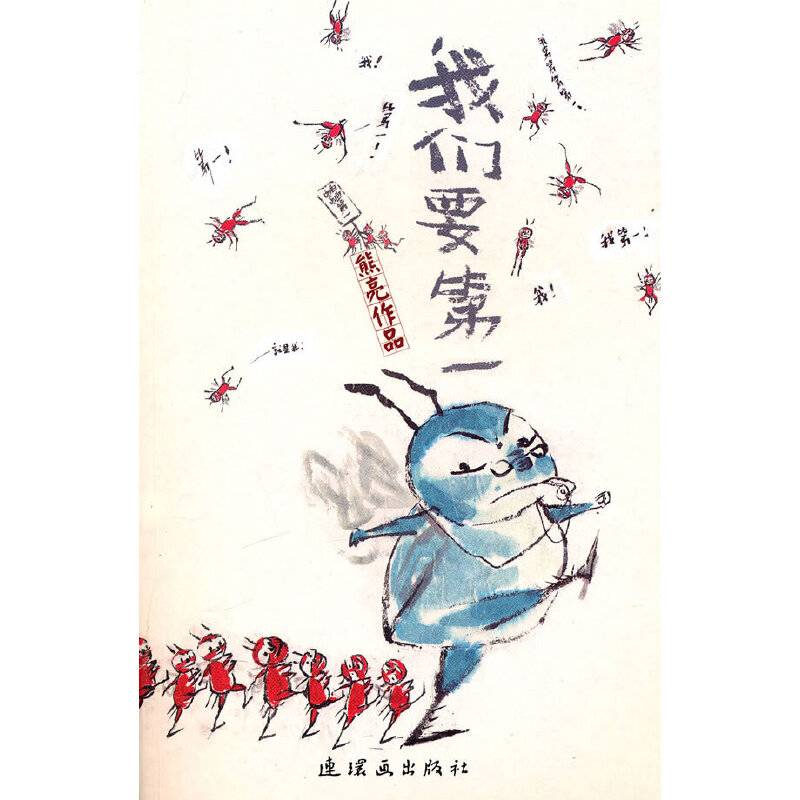 我们要第一
熊亮作品
我！
第一！
第一！
我第一！
我！
就是我！
連環画出版社